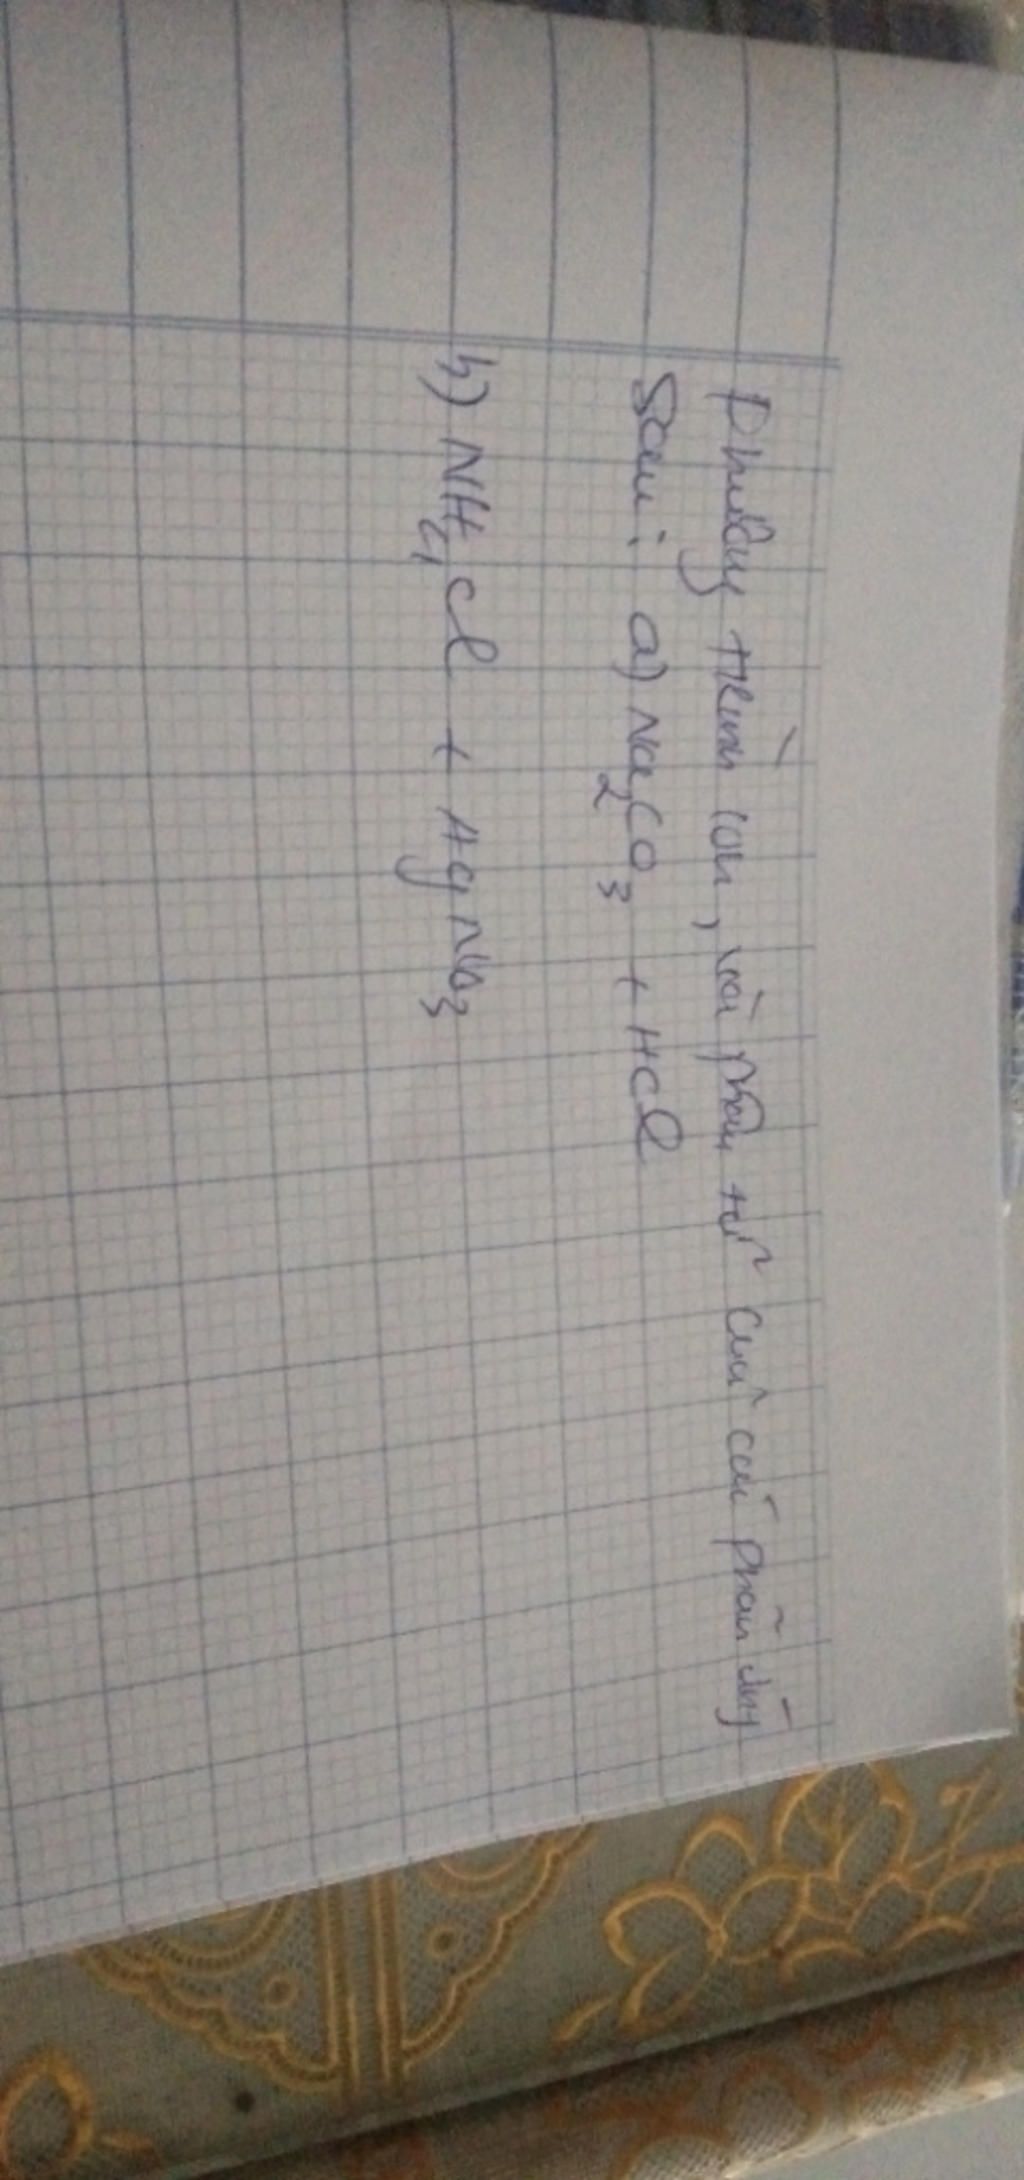 Phương trình ion, và phân tử của các phản ứng
Sau : a) Na₂CO₃ + HCl
b) NH₄Cl + AgNO₃